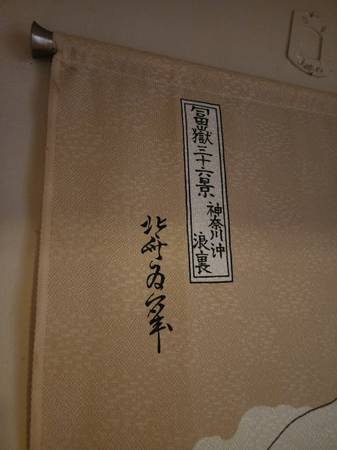 冨嶽三十六景
神奈川沖
浪裏
北斎為一筆